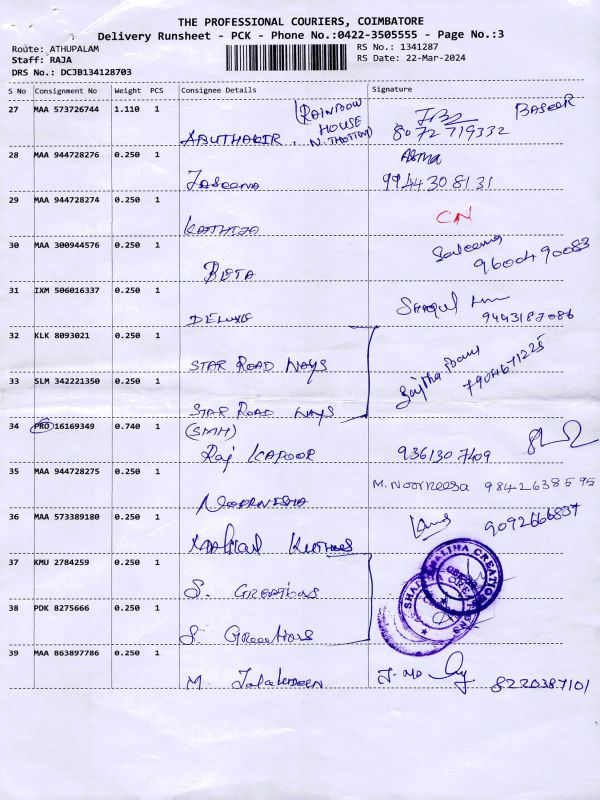 THE PROFESSIONAL COURIERS, COIMBATORE
Delivery Runsheet - PCK - Phone No.:0422-3505555 - Page No.:3
Route: ATHUPALAM
RS No.: 1341287
Staff: RAJA
RS Date: 22-Mar-2024
DRS No.: DCJB134128703
S No Consignment No Weight PCS Consignee Details Signature
27 MAA 573726744 1.110 1 (RAINBOW BASEER
HOUSE
ABUTHAHIR . N. THOTTAM) 8072 719332
28 MAA 944728276 0.250 1
Jaseena 9944308131
29 MAA 944728274 0.250 1 CN
KATHIJA
30 MAA 300944576 0.250 1 9600490083
BETA
31 IXM 506016337 0.250 1
DELUXE 9443187086
32 KLK 8093021 0.250 1
STAR ROAD WAYS 7904671225
33 SLM 342221350 0.250 1
STAR ROAD WAYS
34 PRO 16169349 0.740 1 (SMH)
Raj KAPOOR 936130 7409
35 MAA 944728275 0.250 1 M. Noorneesa 9842638595
NOORNISHA
36 MAA 573389180 0.250 1 9092666837
37 KMU 2784259 0.250 1
S. CREATIONS
38 PDK 8275666 0.250 1
S. Creations
39 MAA 863897786 0.250 1
M. Jalaludeen 8220387101